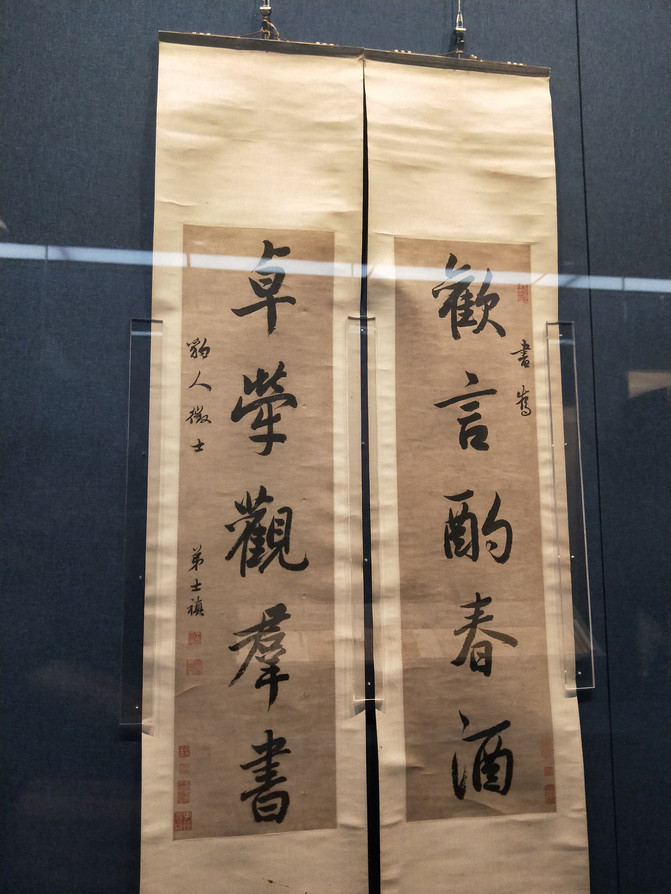 書為
歡言酌春酒
卓犖觀羣書
豹人徵士
弟士禛